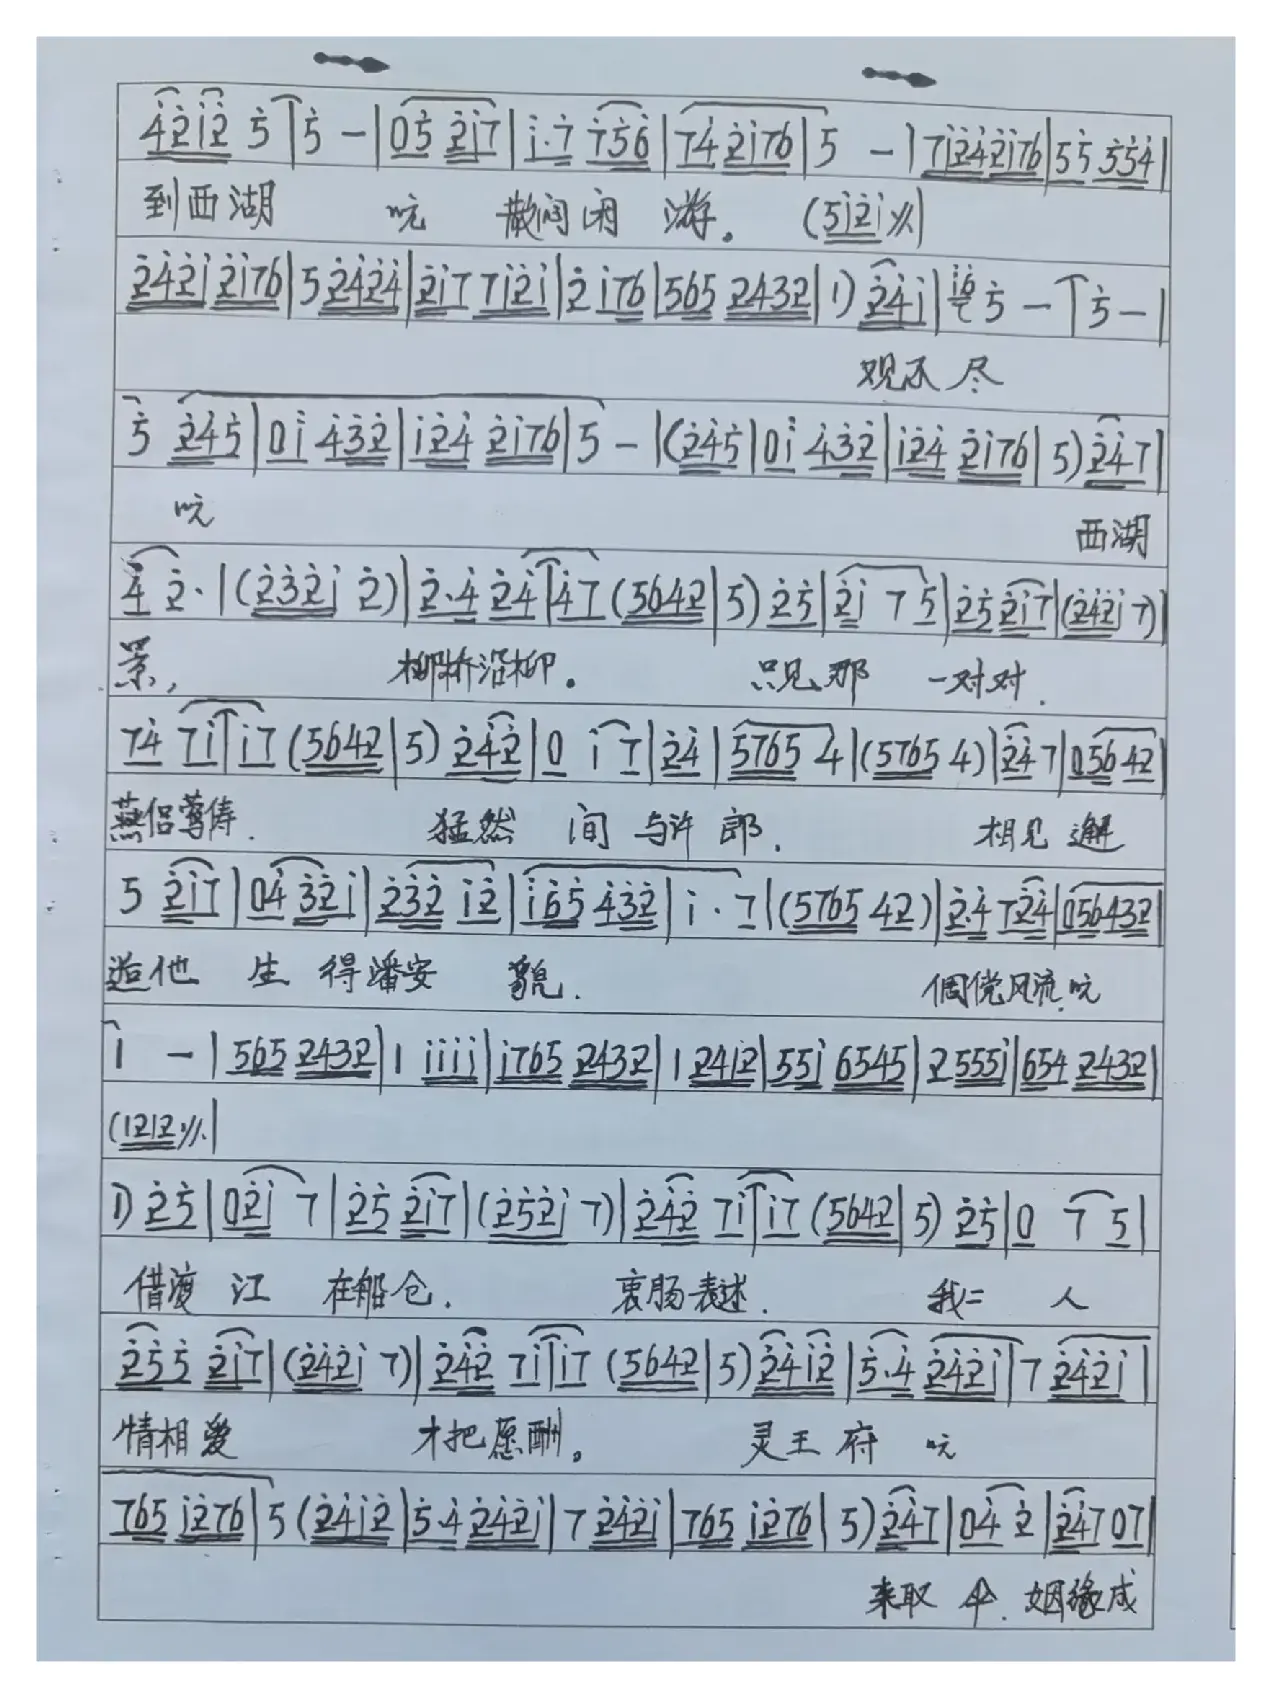 4̇2̇1̇2̇ 5̇ | 5̇ - | 05̇ 2̇1̇7 | 1̇·7̇ 7̇5̇6̇ | 7̇4̇ 2̇1̇76 | 5 - | 71̇2̇4̇2̇1̇76 | 55̇ 5̇5̇4̇ |
到西湖 吭 散闷闲游。(51̇2̇1̇ 〃|
2̇4̇2̇1̇ 2̇1̇76 | 5 2̇4̇2̇4̇ | 2̇1̇7 71̇2̇1̇ | 2̇ 1̇76 | 565 2432 | 1) 2̇4̇1̇ | 1̇6 5̇ - | 5̇ - |
观不尽
5̇ 2̇4̇5̇ | 01̇ 4̇3̇2̇ | 1̇2̇4̇ 2̇1̇76 | 5 - | (2̇4̇5̇ | 01̇ 4̇3̇2̇ | 1̇2̇4̇ 2̇1̇76 | 5) 2̇4̇7 |
吭 西湖
4̇ 2̇· | (2̇3̇2̇1̇ 2̇) | 2̇·4̇ 2̇4̇ | 4̇7 (5642 | 5) 2̇5̇ | 2̇1̇ 7 5̇ | 2̇5̇ 2̇1̇7 | (2̇4̇2̇1̇ 7) |
景, 柳桥沿柳。 只见那 一对对.
74̇ 71̇ | 1̇7 (5642 | 5) 2̇4̇2̇ | 0 1̇ 7 | 2̇4̇ | 5765 4 | (5765 4) | 2̇4̇7 | 0564̇2̇ |
燕侣莺俦. 猛然 间 与许郎. 相见 邂
5 2̇1̇7 | 04̇ 3̇2̇1̇ | 2̇3̇2̇ 1̇2̇ | 1̇6̇5̇ 4̇3̇2̇ | 1̇·7 | (5765 42) | 2̇·4̇ 72̇4̇ | 056432 |
逅他 生 得潘安 貌. 倜傥风流.吭
1̇ - | 565 2432 | 1 1̇1̇1̇1̇ | 1̇765 2432 | 1 2412 | 551̇ 6545 | 2 5551̇ | 654 2432 |
(1212 〃.|
1) 2̇5̇ | 02̇1̇ 7 | 2̇5̇ 2̇1̇7 | (2̇5̇2̇1̇ 7) | 2̇4̇2̇ 71̇ | 1̇7 (5642 | 5) 2̇5̇ | 0 7 5 |
借渡 江 在船仓. 衷肠表述. 我二 人
2̇5̇5̇ 2̇1̇7 | (2̇4̇2̇1̇ 7) | 2̇4̇2̇ 71̇ | 1̇7 (5642 | 5) 2̇4̇1̇2̇ | 5̇·4̇ 2̇4̇2̇1̇ | 7 2̇4̇2̇1̇ |
情相爱 才把愿酬。 灵王府 吭
765 1̇2̇76 | 5 (2̇4̇1̇2̇ | 5̇·4̇ 2̇4̇2̇1̇ | 7 2̇4̇2̇1̇ | 765 1̇2̇76 | 5) 2̇4̇7 | 04̇ 2̇ | 2̇4̇707 |
来取 伞. 姻缘成